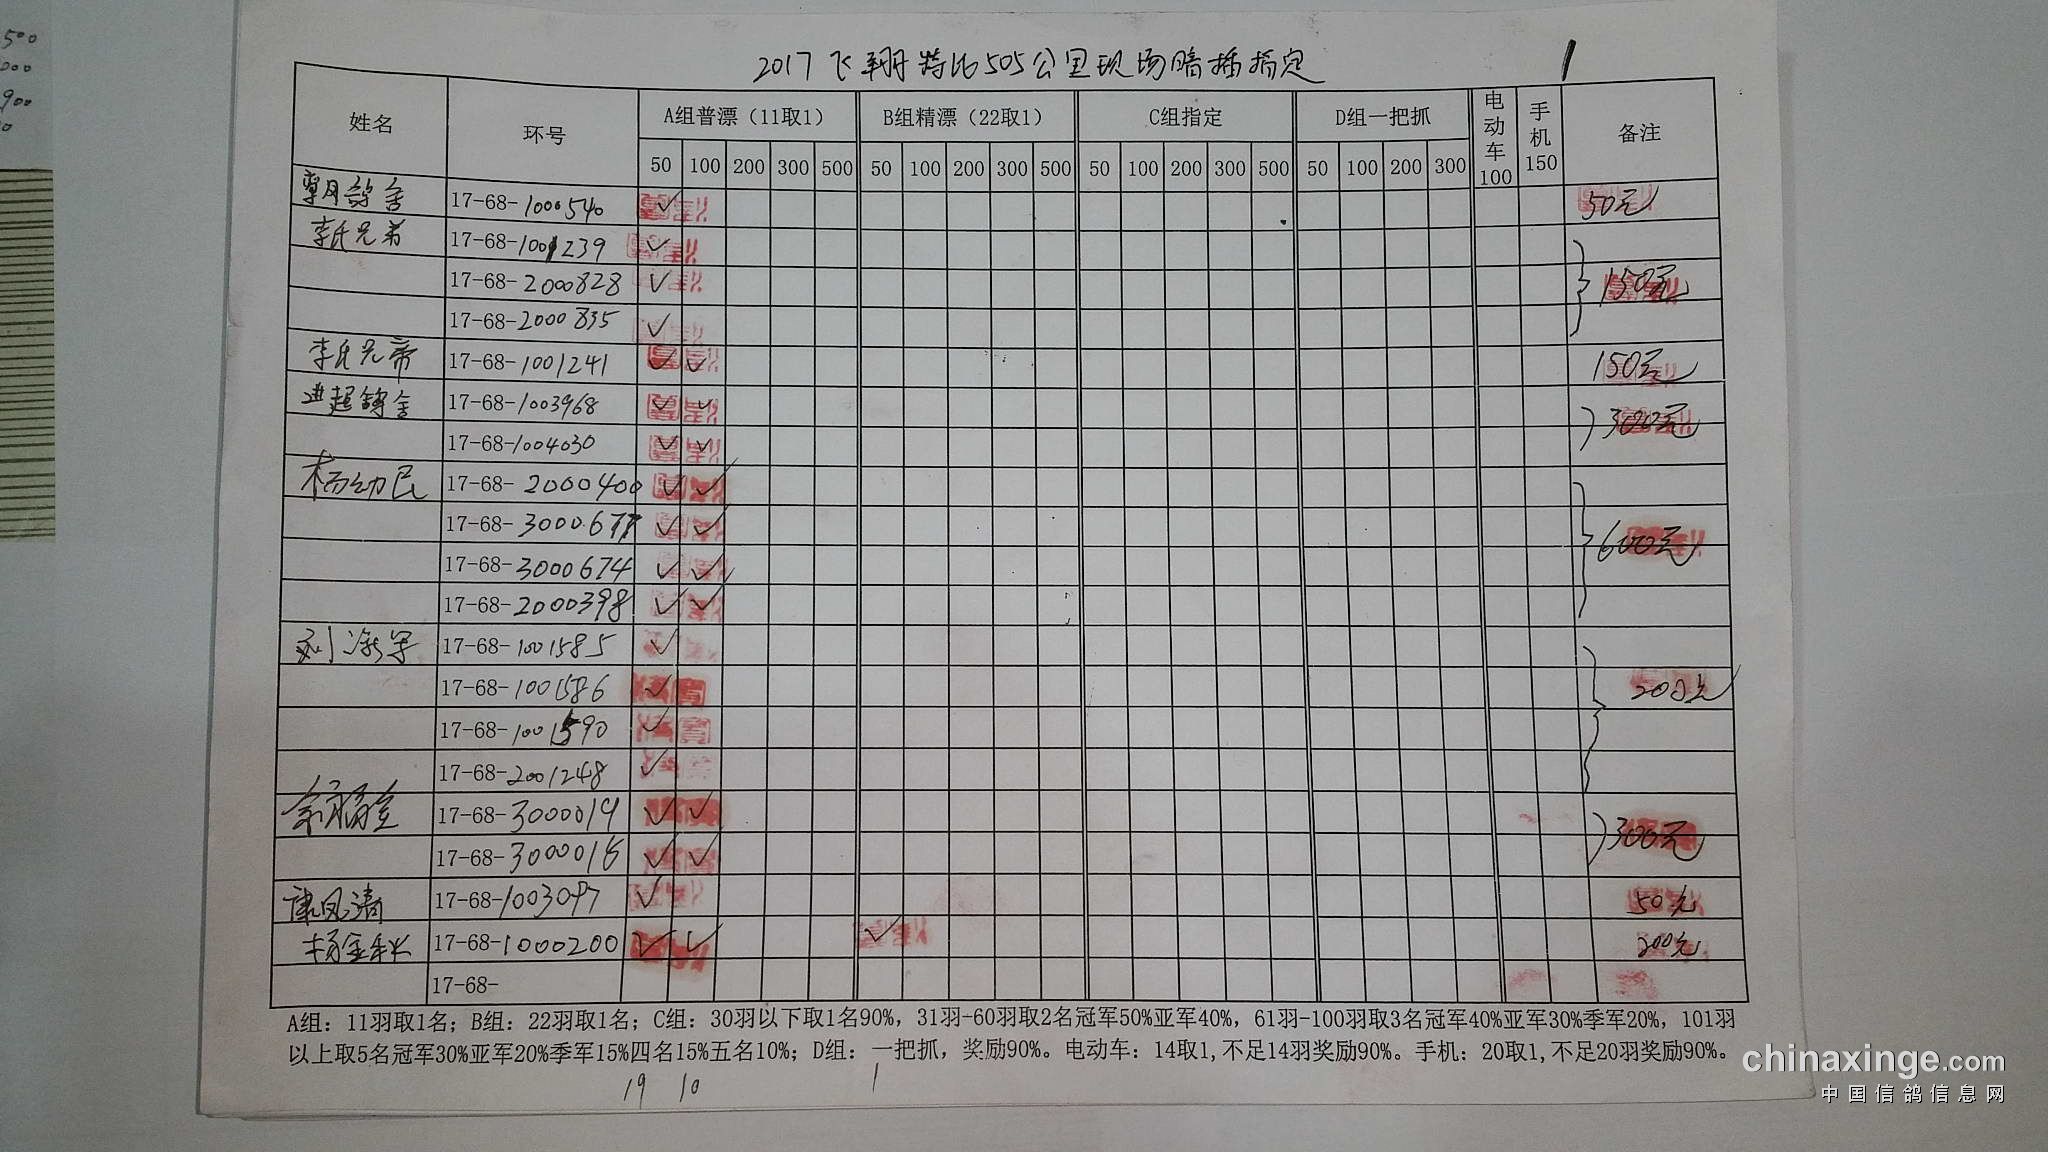 500
000
900
2017飞翔特比505公里现场暗插指定
1
姓名 环号 A组普漂（11取1） B组精漂（22取1） C组指定 D组一把抓 电动车100 手机150 备注
50 100 200 300 500 50 100 200 300 500 50 100 200 300 500 50 100 200 300
鸽舍 17-68-1000540 ✓ 50元
李氏兄弟 17-68-1001239 ✓
17-68-2000828 ✓ 150元
17-68-2000835 ✓
李氏兄弟 17-68-1001241 ✓ ✓ 150元
进超鸽舍 17-68-1003968 ✓ ✓ 300元
17-68-1004030 ✓ ✓
杨幼民 17-68-2000400 ✓ ✓
17-68-3000677 ✓ ✓ 600元
17-68-3000674 ✓ ✓
17-68-2000398 ✓ ✓
刘 17-68-1001585 ✓
17-68-1001586 ✓ 200元
17-68-1001590 ✓
17-68-2001248 ✓
17-68-3000019 ✓ ✓ 300元
17-68-3000016 ✓ ✓
康凤清 17-68-1003097 ✓ 50元
杨金秋 17-68-1000200 ✓ ✓ ✓ 200元
17-68-
A组：11羽取1名；B组：22羽取1名；C组：30羽以下取1名90%，31羽-60羽取2名冠军50%亚军40%，61羽-100羽取3名冠军40%亚军30%季军20%，101羽
以上取5名冠军30%亚军20%季军15%四名15%五名10%；D组：一把抓，奖励90%。电动车：14取1,不足14羽奖励90%。手机：20取1,不足20羽奖励90%。
19 10 1
chinaxinge.com
中国信鸽信息网